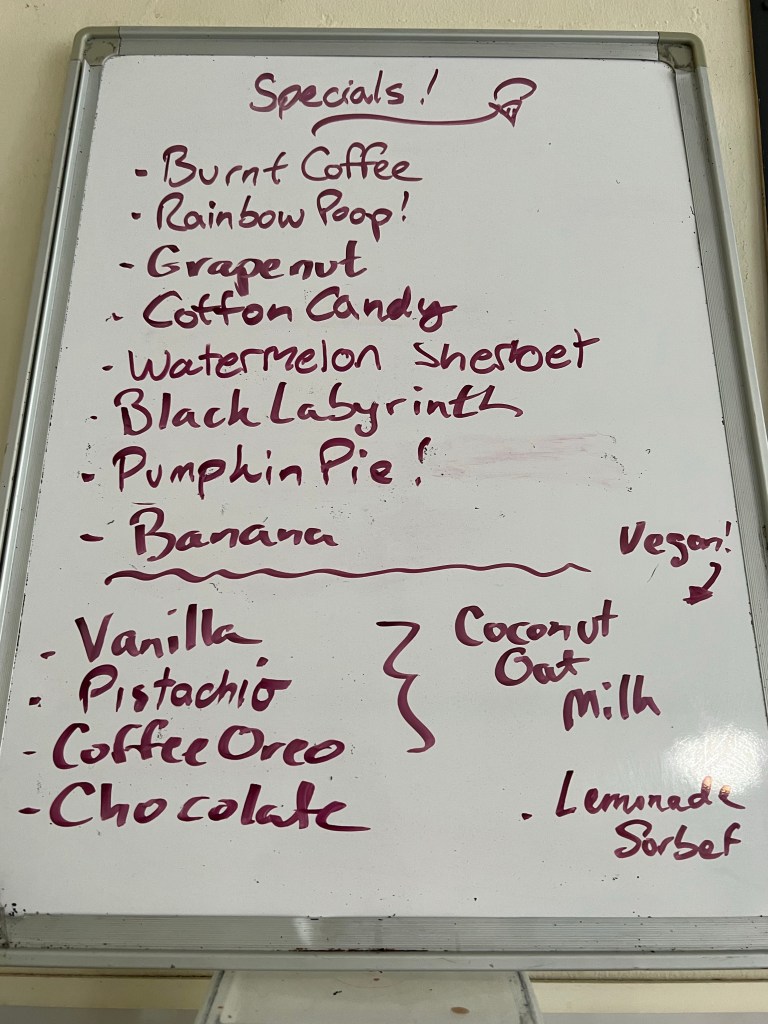 Specials!
- Burnt Coffee
- Rainbow Poop!
- Grapenut
- Cotton Candy
- Watermelon Sherbet
- Black Labyrinth
- Pumpkin Pie!
- Banana
Vegan!
- Vanilla
- Pistachio
- Coffee Oreo
- Chocolate
Coconut
Oat
Milk
- Lemonade
Sorbet